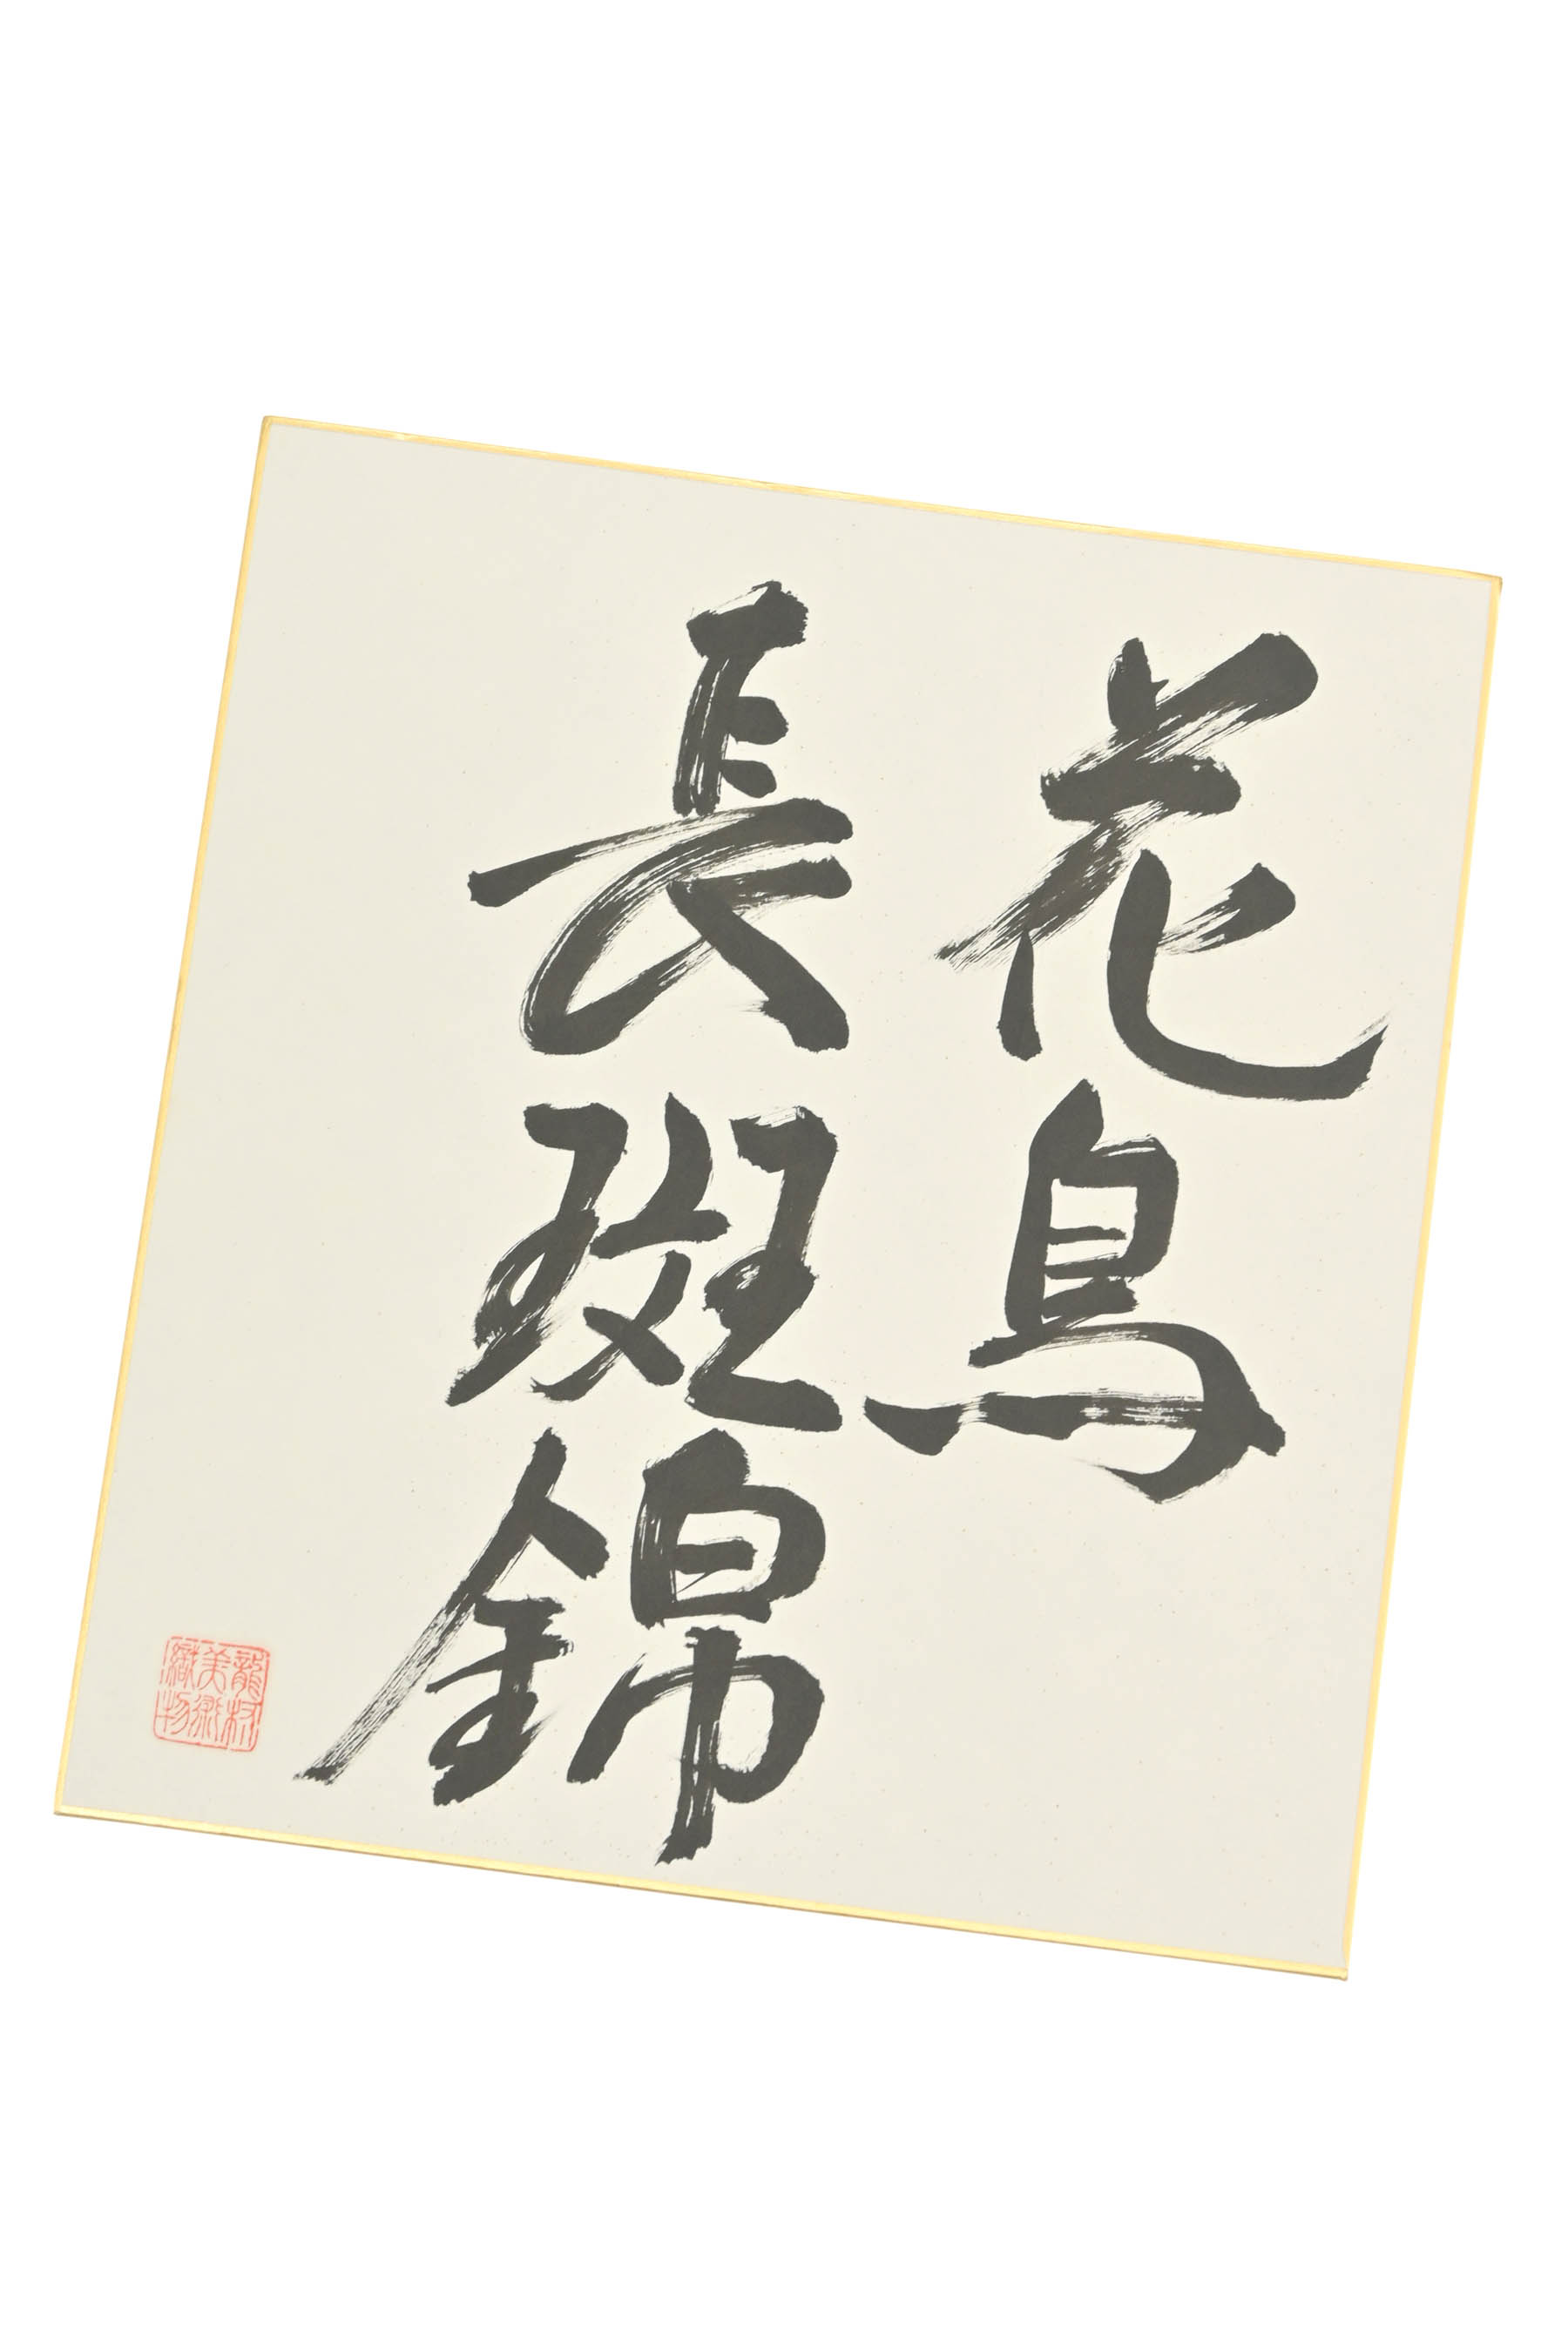 花鳥
長斑錦
龍村
美術
織物